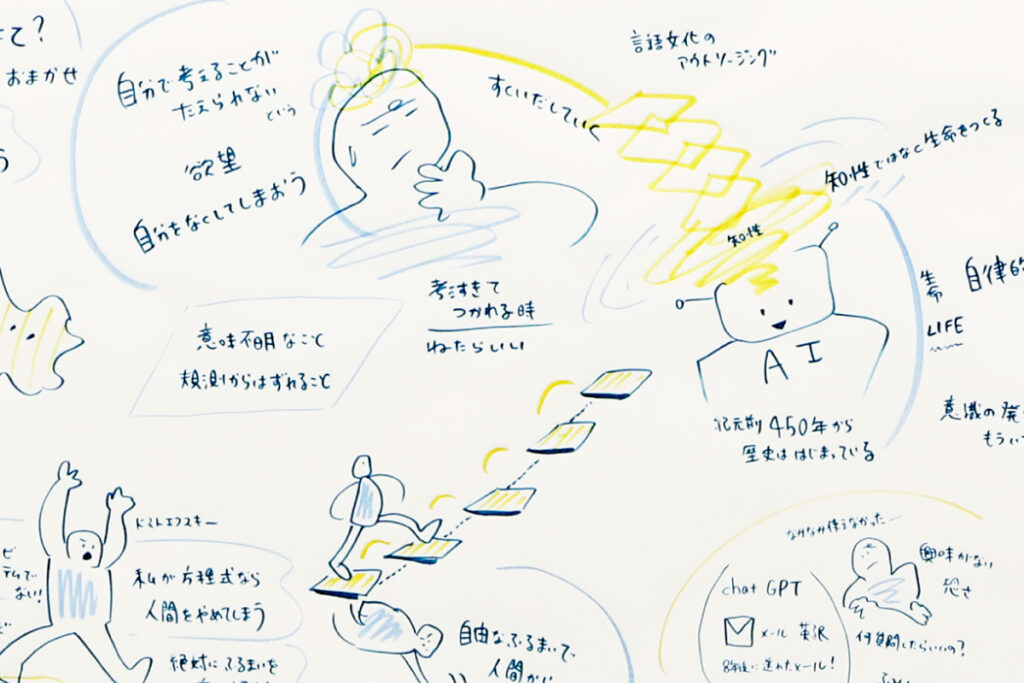 て?
おまかせ
自分で考えることが
たえられない
という
欲望
自分をなくしてしまおう
言語文化の
アウトソージング
すくいだしていく
知性ではなく生命をつくる
知性
考えすぎて
つかれる時
ねたらいい
意味不明なこと
規測からはずれること
AI
紀元前450年から
歴史ははじまっている
生命
自律的
LIFE
意識の発
もうい
ドストエフスキー
ない!
私が方程式なら
人間をやめてしまう
絶対にふるまいを
自由なふるまいで
人間が
なかなか使えなかった…
chat GPT
メール 英訳
8年後に送れたメール!
興味がない
恐さ
何質問したらいいの?